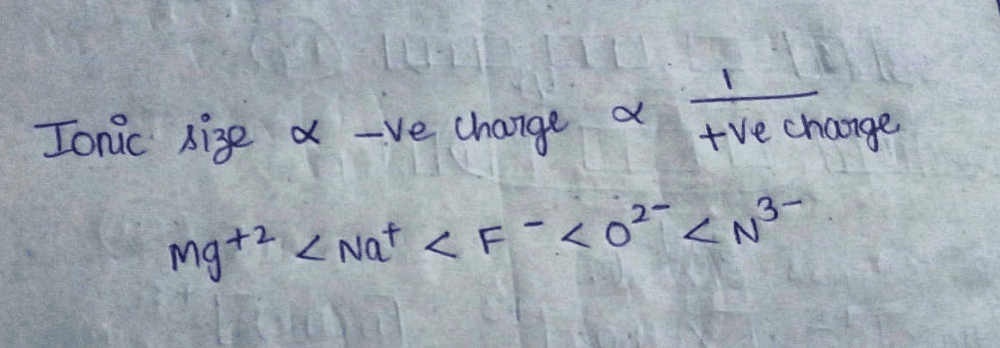 Ionic size ∝ -ve charge ∝ 1/+ve charge
Mg⁺² < Na⁺ < F⁻ < O²⁻ < N³⁻